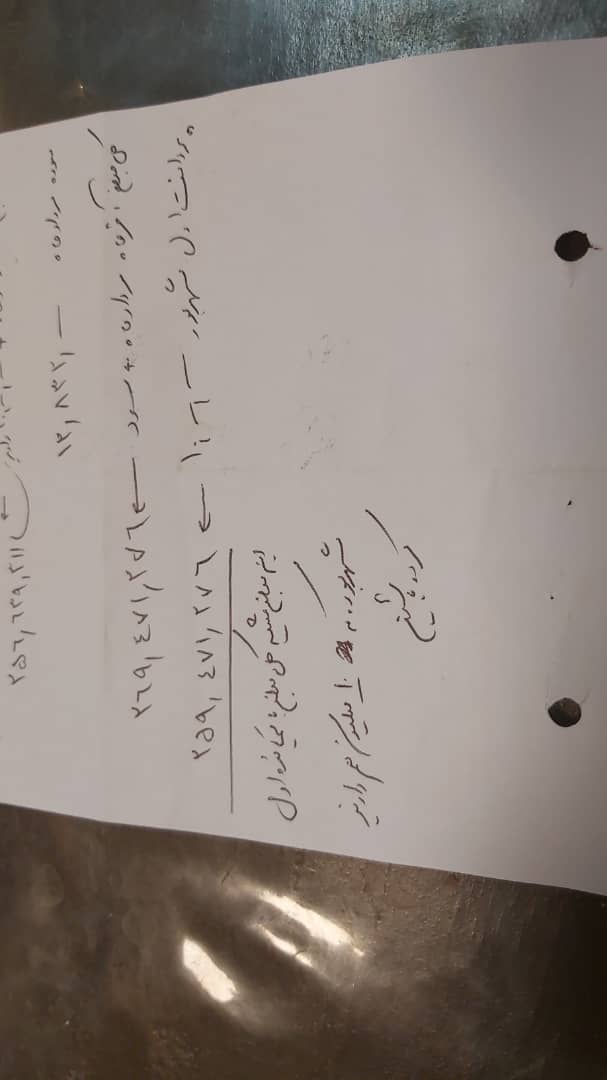 ۲۵۶,۶۳۹,۲۱۱ ←
سود مردادماه — ۱۳,۸۳۲,
کل مبلغ آخرماه مردادماه + سود ← ۲۶۹,۴۷۱,۲۷۶
پرداخت اول شهریور — ۱۰ ← ۲۵۹,۴۷۱,۲۷۶
این مبلغ میشه کل مبلغ باقیمانده اول
شهریور که ۱۰ میلیون هم واریز
کرده باشین